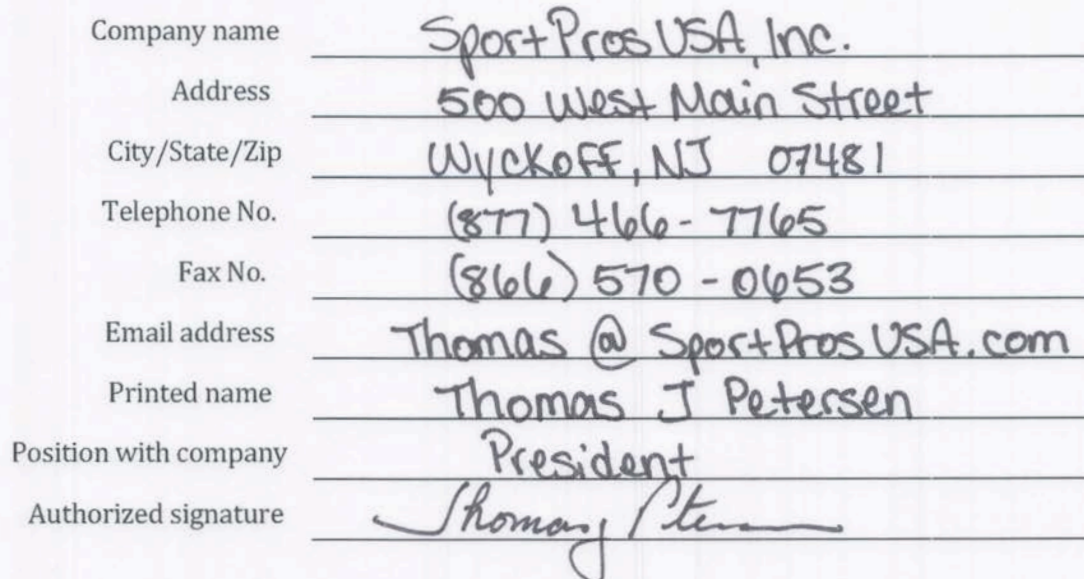 Company name SportPros USA, Inc.
Address 500 West Main Street
City/State/Zip Wyckoff, NJ 07481
Telephone No. (877) 466-7765
Fax No. (866) 570-0653
Email address Thomas @ SportPros USA.com
Printed name Thomas J Petersen
Position with company President
Authorized signature Thomas J Petersen